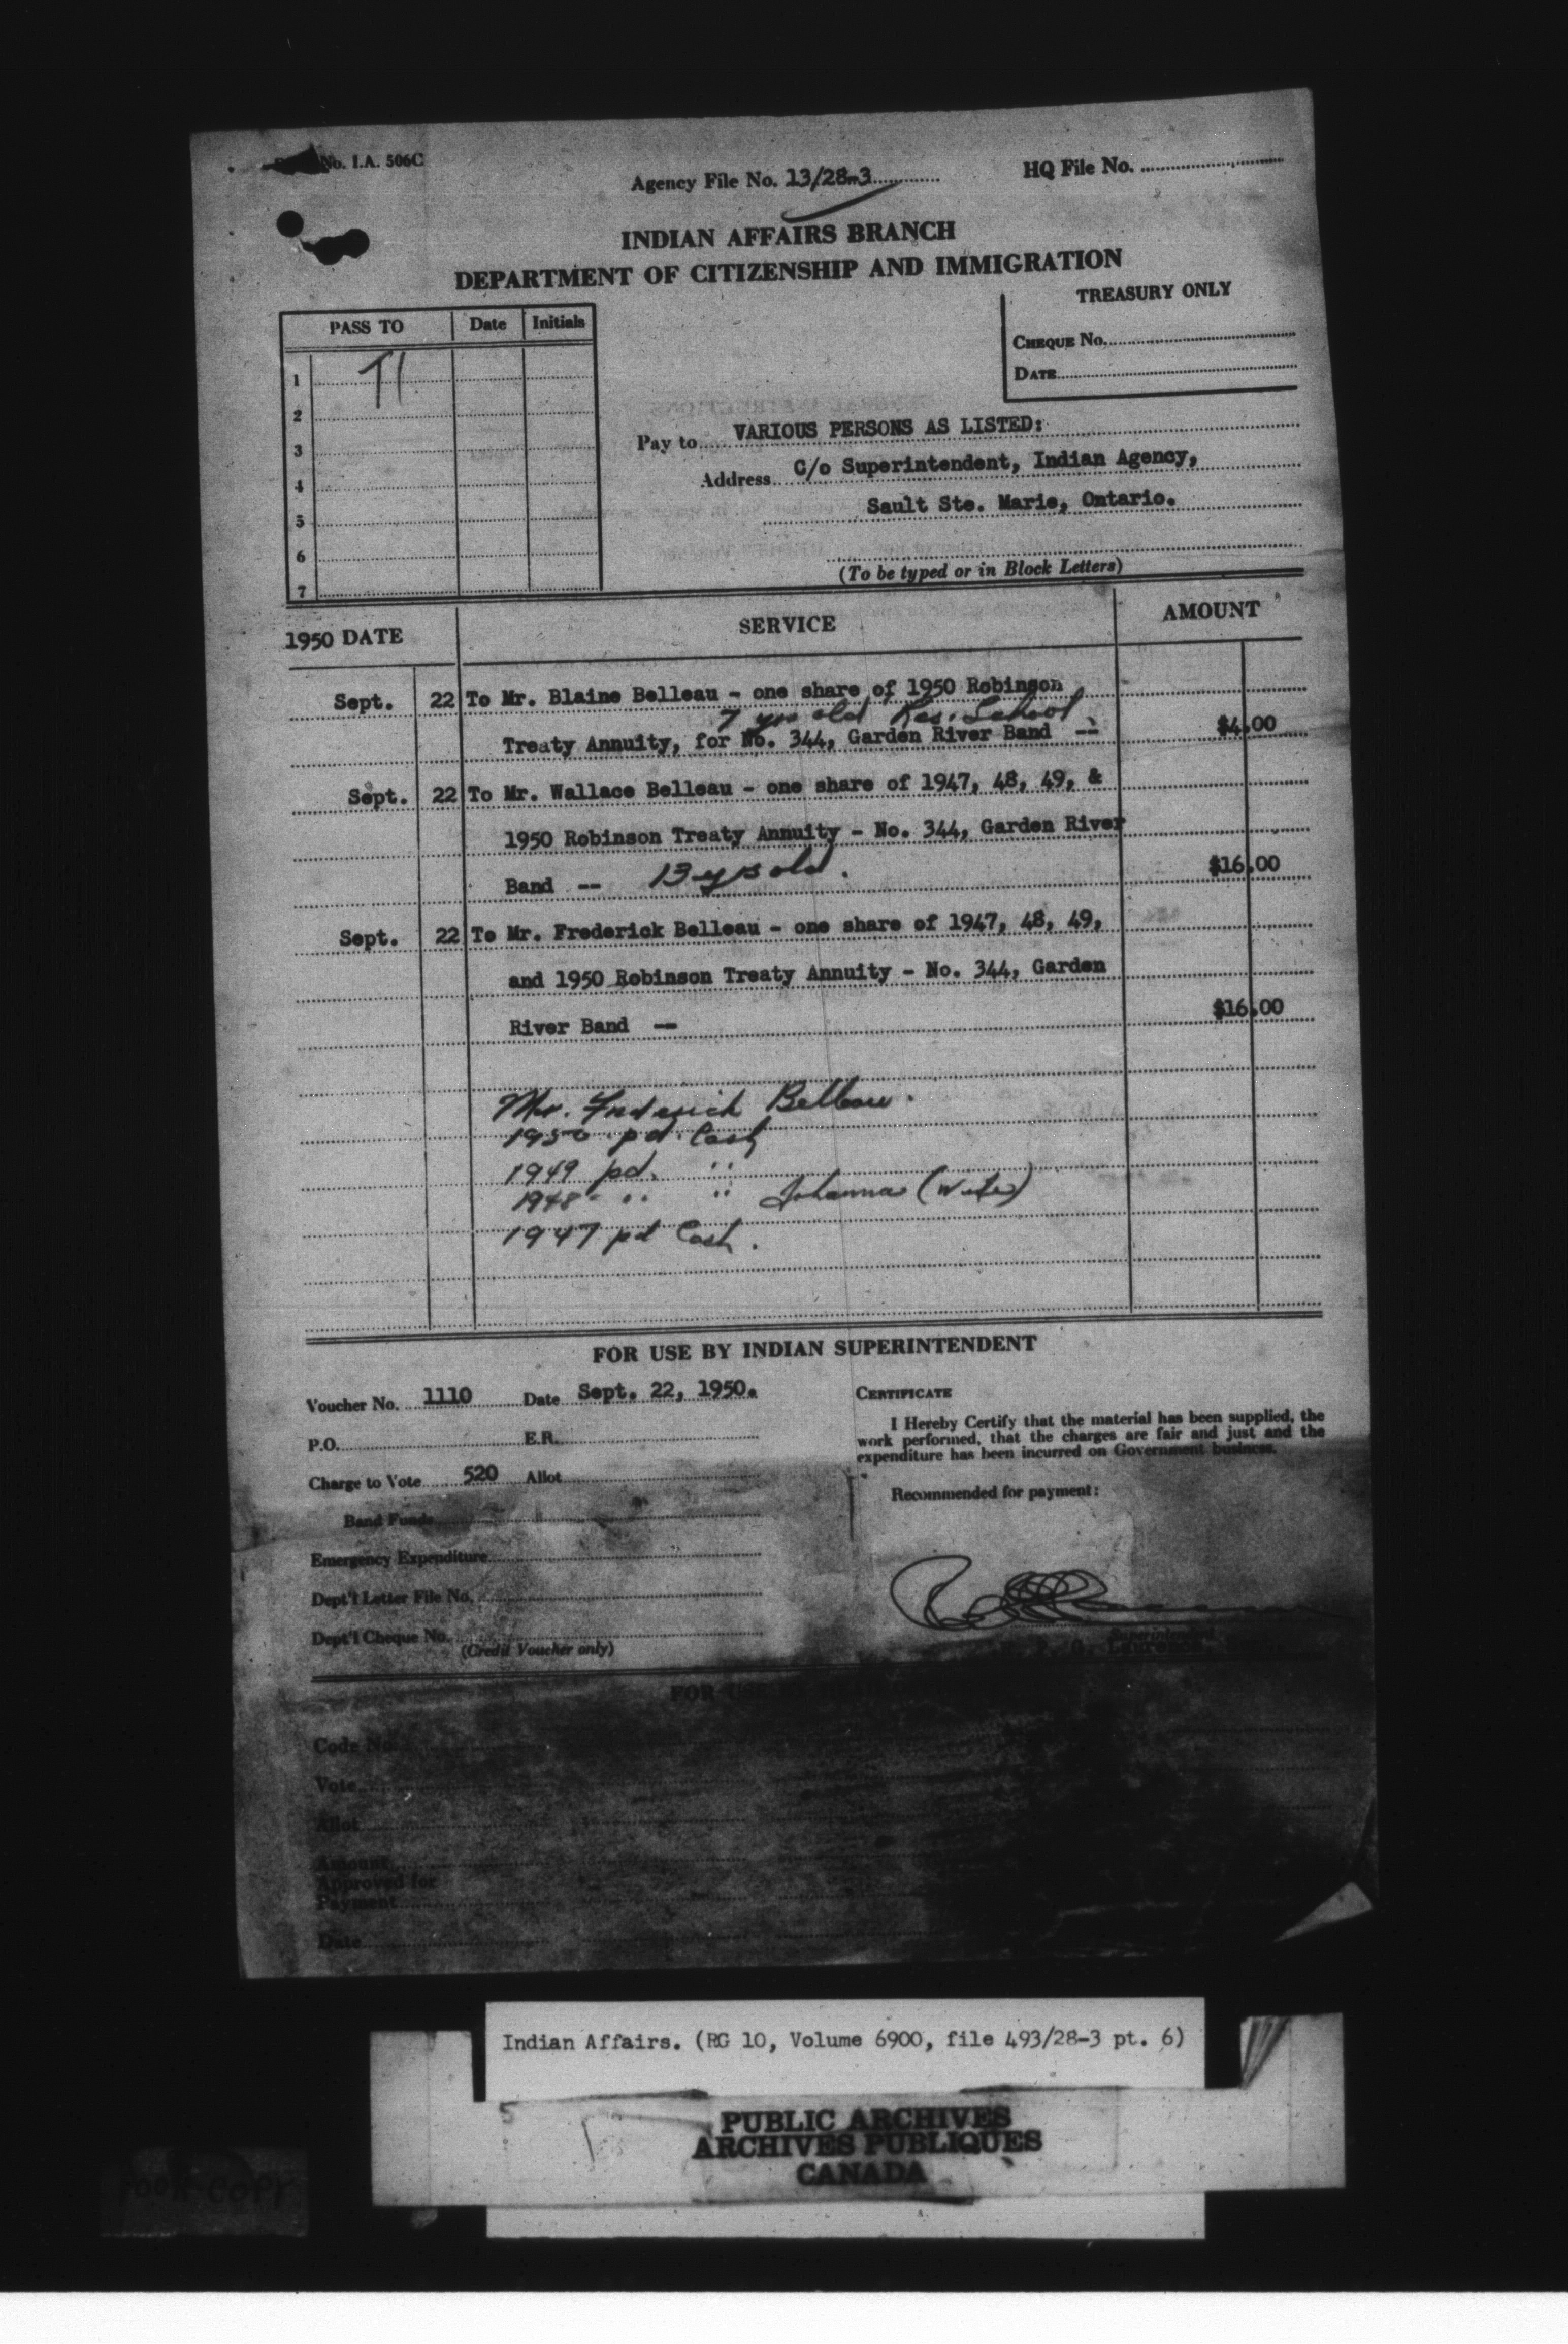 No. I.A. 506C
Agency File No. 13/28-3
HQ File No.
INDIAN AFFAIRS BRANCH
DEPARTMENT OF CITIZENSHIP AND IMMIGRATION
TREASURY ONLY
CHEQUE No.
DATE
PASS TO Date Initials
1
2
3
4
5
6
7
Pay to VARIOUS PERSONS AS LISTED:
Address C/o Superintendent, Indian Agency,
Sault Ste. Marie, Ontario.
(To be typed or in Block Letters)
1950 DATE SERVICE AMOUNT
Sept. 22 To Mr. Blaine Belleau - one share of 1950 Robinson
7 yrs old Res. School
Treaty Annuity, for No. 344, Garden River Band -- $4.00
Sept. 22 To Mr. Wallace Belleau - one share of 1947, 48, 49, &
1950 Robinson Treaty Annuity - No. 344, Garden River
Band -- 13 yrs old. $16.00
Sept. 22 To Mr. Frederick Belleau - one share of 1947, 48, 49,
and 1950 Robinson Treaty Annuity - No. 344, Garden
River Band -- $16.00
Mr. Frederick Belleau.
1950 pd. Cash
1949 pd. "
1948 - " " Johanna (Wife)
1947 pd Cash.
FOR USE BY INDIAN SUPERINTENDENT
Voucher No. 1110 Date Sept. 22, 1950.
P.O. E.R.
Charge to Vote 520 Allot
Band Funds
Emergency Expenditure
Dept'l Letter File No.
Dept'l Cheque No.
(Credit Voucher only)
CERTIFICATE
I Hereby Certify that the material has been supplied, the
work performed, that the charges are fair and just and the
expenditure has been incurred on Government business.
Recommended for payment:
Superintendent
FOR USE
Code No.
Vote
Allot
Amount
Approved for
Payment
Date
Indian Affairs. (RG 10, Volume 6900, file 493/28-3 pt. 6)
PUBLIC ARCHIVES
ARCHIVES PUBLIQUES
CANADA
POOR COPY